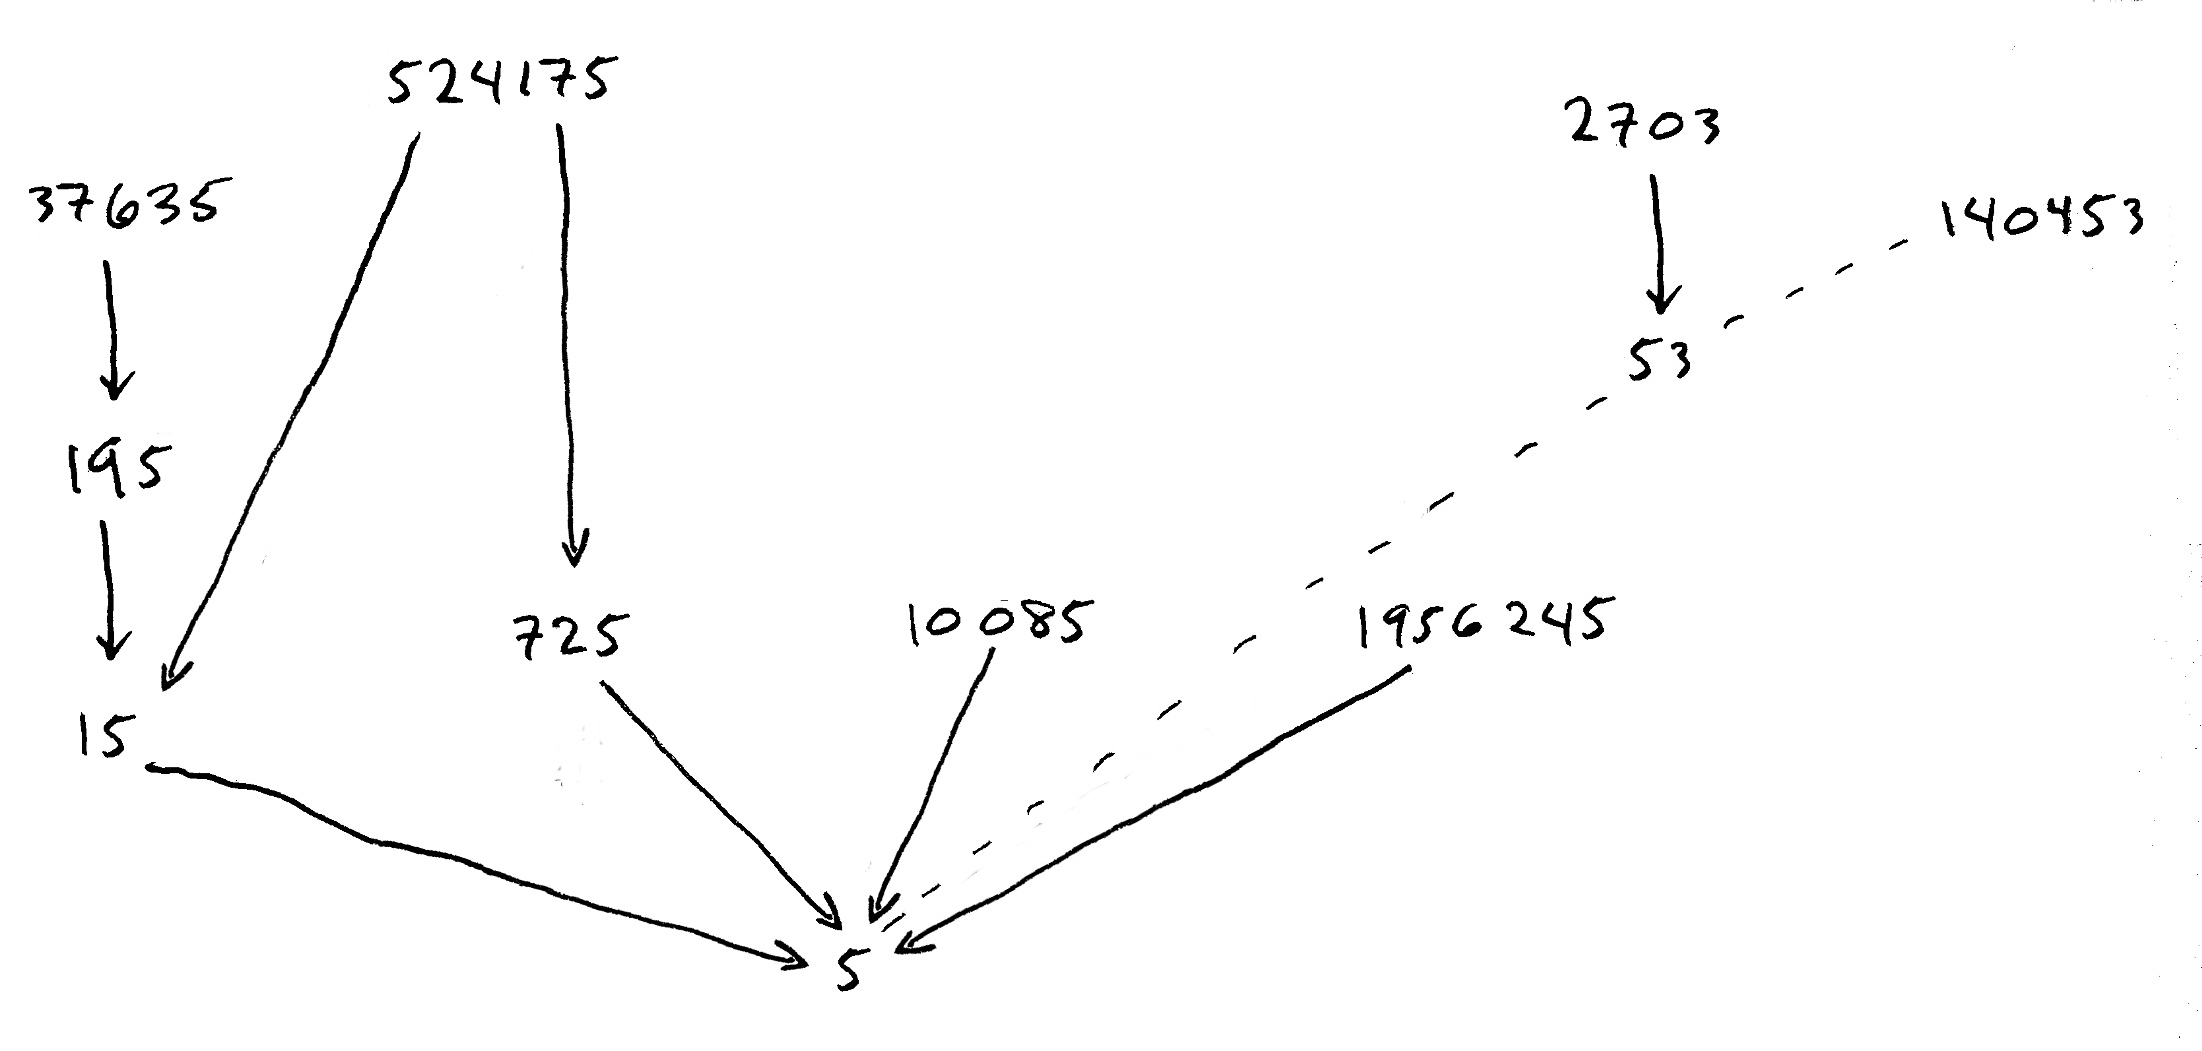 524175
2703
37635
140453
53
195
725
10085
1956245
15
5